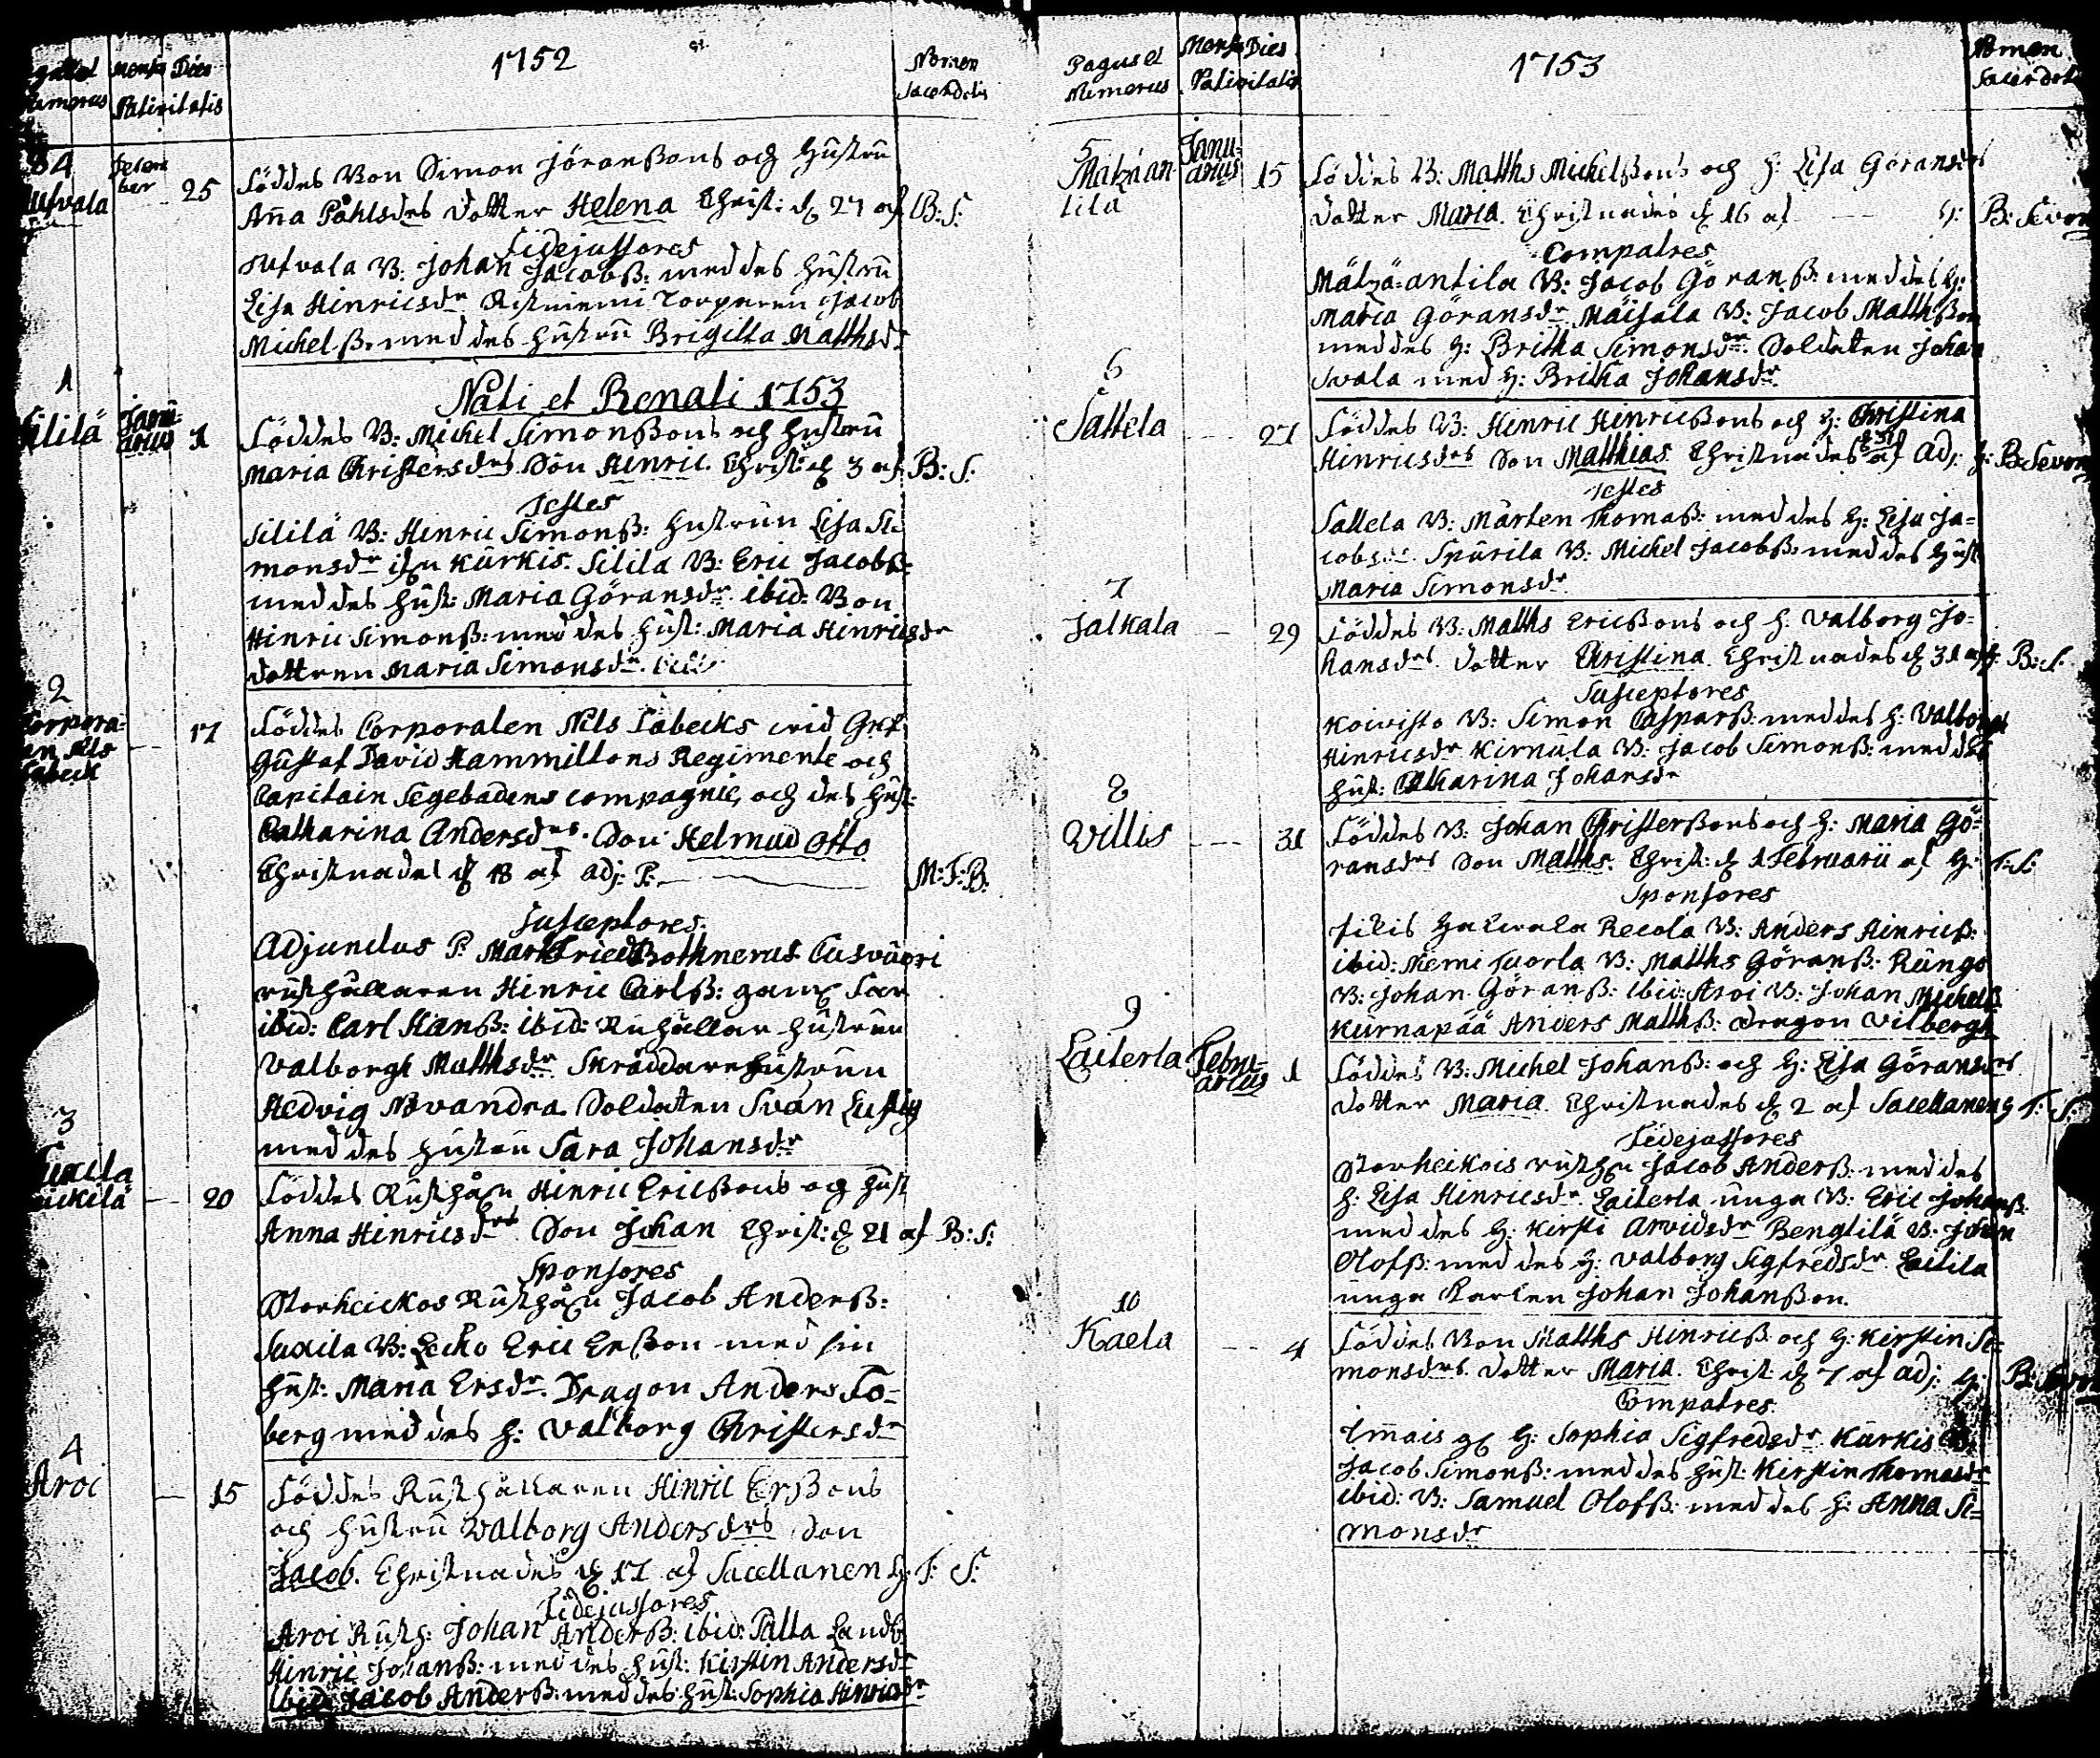 1752
Mensis Dies
Nativitatis
Nomen
Sacerdotis
84
Decem
ber
25
Föddes Bon Simon Jöranßons och Hustru
Anna Påhlsdrs dotter Helena Christ: d 27 af B: S:
Fidejussores
Sufvala B: Johan Jacobß: med des Hustru
Lisa Hinricsdr Torparen Jacob
Michelß. med des Hustru Brigitta Matthsdr
Nati et Renati 1753
1
Sililä
Janu-
arius
1
Föddes B: Michel Simonßons och Hustru
Maria Christersdrs Son Henric. Christ: d 3 af B: S:
Testes
Sililä B: Henric Simonß: Hustrun Lisa Si-
monsdr Kurkis. Silila B: Eric Jacobß:
med des Hust: Maria Göransdr ibid: Bon
Hinric Simonß: med des Hust: Maria Hinricsdr
dottren Maria Simonsdr.
2
Corpora-
en Nils
Sabeck
17
Föddes Corporalen Nils Sabecks wid Gref
Gustaf David Hammiltons Regimente och
Capitain Segebadens compagnie, och des Hust:
Catharina Andersdrs. Son Helmud Otto
Christnades d 18 af Adj: P: M: F: B:
Susceptores.
Adjunctus P. Mark Fried Bothnerus Cusvuori
rusthållaren Hinric Carlß:
ibid: Carl Hanß: ibid: Hustrun
Valborgh Matthsdr Skräddare Hustrun
Hedvig Novandra. Soldaten Svan Lustig
med des Hustru Sara Johansdr
3
20
Föddes Hinric Ericßons och Hust
Anna Hinricsdrs Son Johan Christ: d 21 af B: S:
Sponsores
Storheickos Jacob Anderß:
Suxila B: Eric Erßon med sin
Hust: Maria Ersdr. Dragon Anders Fo-
berg med des H: Valborg Christersdr
4
Aroi
15
Föddes Rusthållaren Hinric Erßons
och Hustru Walborg Andersdrs Son
Jacob. Christnades d 17 af Sacellanen H: F: S:
Fidejussores
Aroi Rusth: Johan Anderß: ibid: Palla
Hinric Johanß: med des Hust: Kirstin Andersdr
ibid: Jacob Anderß: med des Hust: Sophia Hinricsdr
Pagus et
Numerus
Mensis Dies
Nativitatis
1753
Nomen
Sacerdot
5
Mätzän
tila
Janu-
arius
15
Föddes B: Matths Michelßons och H: Lisa Göransdrs
dotter Maria. Christnades d 16 af H: B: Sevon
Compatres
Mätzä-antila B: Jacob Göranß: med des H:
Maria Göransdr Mäisala B: Jacob Matthßon
med des H: Britha Simonsdr. Soldaten Johan
Svala med H: Britha Johansdr.
6
Sallela
27
Föddes B: Hinric Hinricßons och H: Christina
Hinricsdrs Son Matthias Christnades af Adj: H: B: Sevon
Testes
Sallela B: Mårten Thomaß: med des H: Lisa Ja-
cobsdr. Spurila B: Michel Jacobß: med des Hust
Maria Simonsdr.
7
Jalkala
29
Föddes B: Matths Ericßons och H: Valborg Jo-
hansdrs dotter Christina. Christnades d 31 af H: B: S:
Susceptores
Koivisto B: Simon Casparß: med des H: Valborg
Hinricsdr Kirnula B: Jacob Simonß: med des
Hust: Catharina Johansdr
8
Willis
31
Föddes B: Johan Christerßons och H: Maria Gö-
ransdrs Son Matths. Christ: d 1 Februarii af H: F: S:
Sponsores
Recola B: Anders Hinricß:
ibid: Niemi Juorla B: Matths Göranß: Rungo
B: Johan Göranß: ibid: Aroi B: Johan Michelß
Kurnapää Anders Matthß: Dragon Vilbergh
9
Laiterla
Febru-
arius
1
Föddes B: Michel Johanß: och H: Lisa Göransdrs
dotter Maria. Christnades d 2 af Sacellanen H F: S:
Fidejussores
Storheickois Jacob Anderß: med des
H: Lisa Hinricsdr. Laiterla unga B: Eric Johanß.
med des H: Kirsti Arvidsdr Bengtilä B: Johan
Olofß: med des H: Valborg Sigfredsdr. Laitila
unga Karlen Johan Johanßon.
10
Kaela
4
Föddes Bon Matths Hinricß: och H: Kirstin Si-
monsdrs. dotter Maria. Christ d 7 af Adj: H: B: Sevon
Compatres
H: Sophia Sigfredsdr. Kurkis B:
Jacob Simonß: med des Hust: Kirstin Thomasdr
ibid: B: Samuel Olofß: med des H: Anna Si-
monsdr